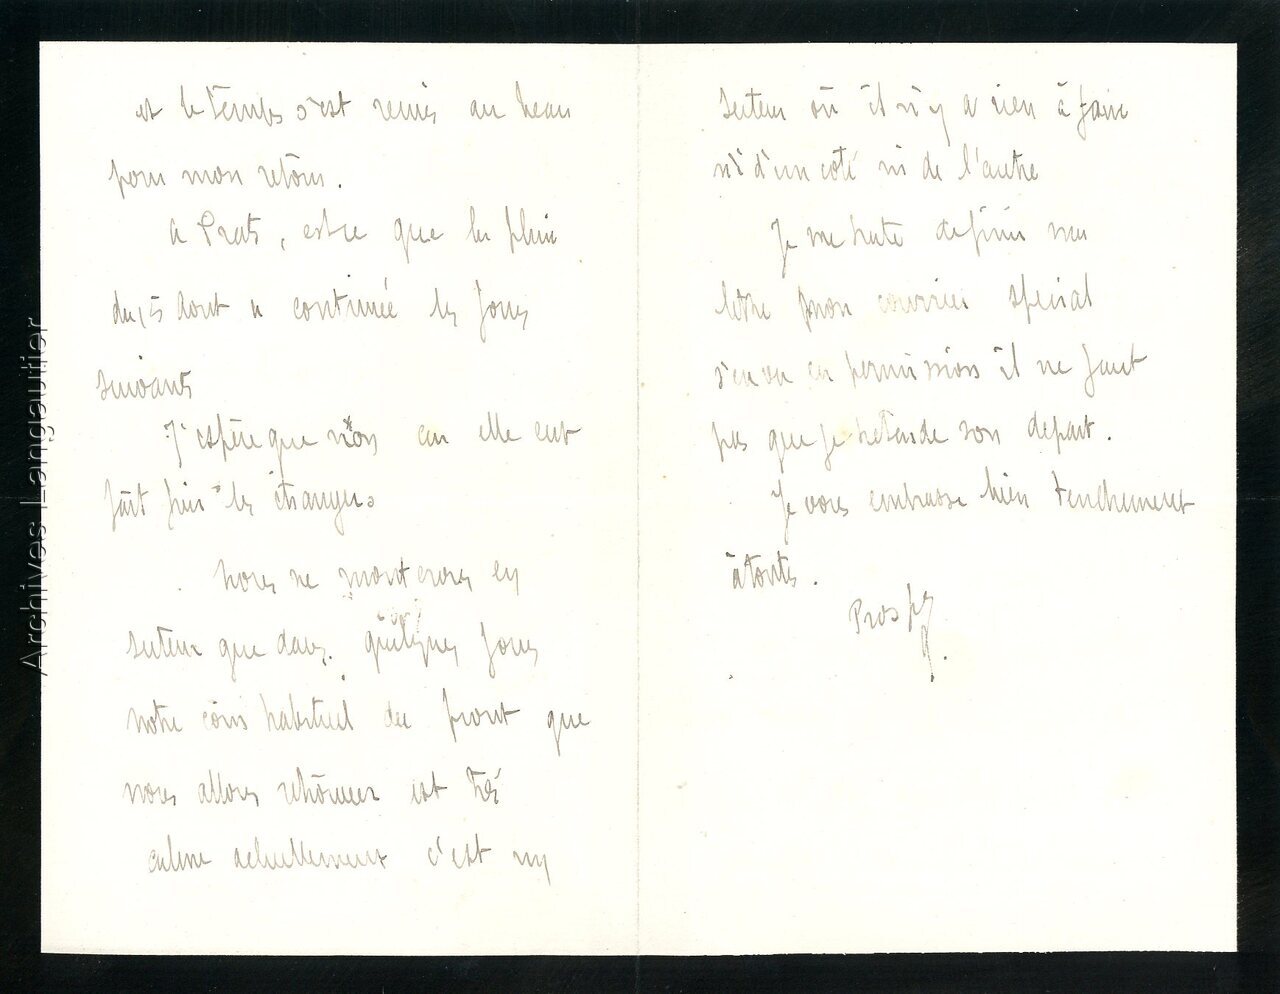 et le temps s'est remis au beau
pour mon retour.
A Prats, est ce que la pluie
du 15 Aout a continuée les jours
suivants
J'espère que non car elle eut
fait fuir les étrangers
Nous ne monterons en
secteur que dans quelques jours
notre coin habituel du front que
nous allons retrouver est très
calme actuellement c'est un
secteur où il n'y a rien à faire
ni d'un coté ni de l'autre
Je me hate de finir ma
lettre mon courrier special
s'en va en permission il ne faut
pas que je retarde son depart.
Je vous embrasse bien tendrement
à toutes.
Prosper
Archives Langautier